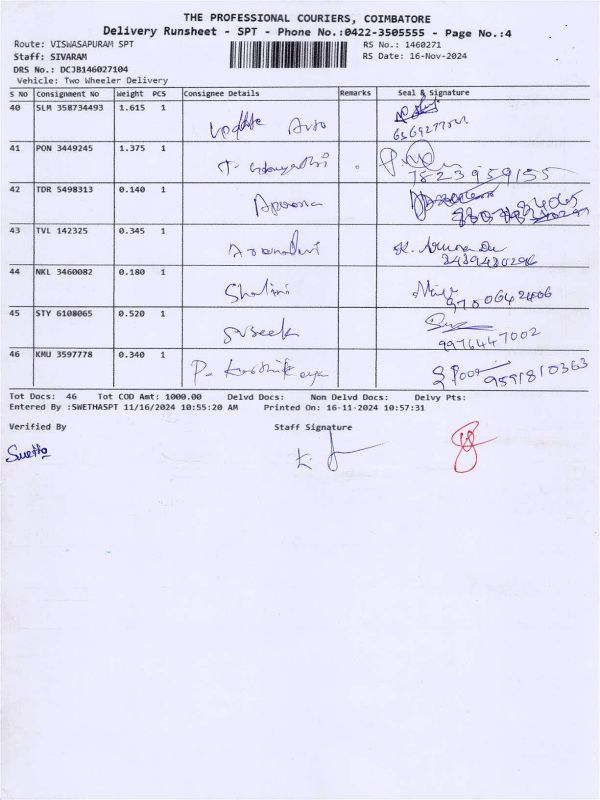 THE PROFESSIONAL COURIERS, COIMBATORE
Delivery Runsheet - SPT - Phone No.:0422-3505555 - Page No.:4
Route: VISWASAPURAM SPT RS No.: 1460271
Staff: SIVARAM RS Date: 16-Nov-2024
DRS No.: DCJB146027104
Vehicle: Two Wheeler Delivery
S No Consignment No Weight PCS Consignee Details Remarks Seal & Signature
40 SLM 358734493 1.615 1
Update Auto
41 PON 3449245 1.375 1
7823959155
42 TDR 5498313 0.140 1
Apoorna
43 TVL 142325 0.345 1
Arunadevi K. Aruna De
8489480296
44 NKL 3460082 0.180 1
Shalini
9750642406
45 STY 6108065 0.520 1
9976447002
46 KMU 3597778 0.340 1
P. Karthikeya 9591810363
Tot Docs: 46 Tot COD Amt: 1000.00 Delvd Docs: Non Delvd Docs: Delvy Pts:
Entered By :SWETHASPT 11/16/2024 10:55:20 AM Printed On: 16-11-2024 10:57:31
Verified By Staff Signature
Swetha